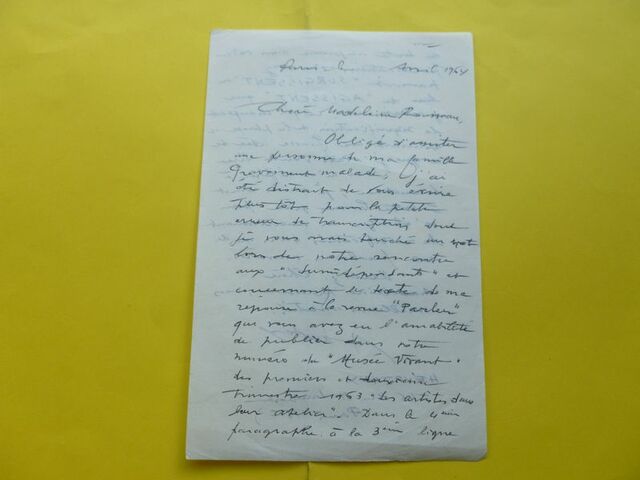 Paris le Avril 1964
Chère Madeleine Rousseau,
Obligé d'assister
une personne de ma famille
gravement malade, j'ai
été distrait de vous écrire
plus tôt pour la petite
erreur de transcription dont
je vous avais touché un mot
lors de notre rencontre
aux "Surindépendants" et
concernant le texte de ma
réponse à la revue "Parler"
que vous avez eu l'amabilité
de publier dans votre
numéro du "Musée Vivant"
des premiers et deuxième
trimestre 1963 "Les artistes dans
leur atelier". Dans le 4ème
paragraphe à la 3ème ligne